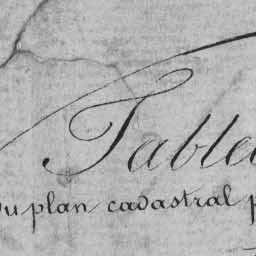 Table
du plan cadastral p